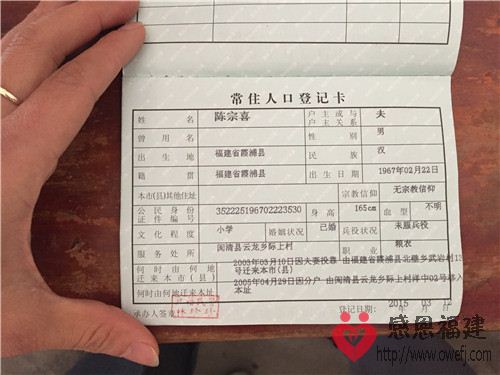 常住人口登记卡
姓名 陈宗喜 户主或与户主关系 夫
曾用名 性别 男
出生地 福建省霞浦县 民族 汉
籍贯 福建省霞浦县 出生日期 1967年02月22日
本市(县)其他住址 宗教信仰 无宗教信仰
公民身份证件编号 352225196702223530 身高 165cm 血型 不明
文化程度 小学 婚姻状况 已婚 兵役状况 未服兵役
服务处所 闽清县云龙乡际上村 职业 粮农
何时由何地迁来本市(县) 2003年03月10日因夫妻投靠 由福建省霞浦县北壁乡武岩村13号迁来本市(县)
何时由何地迁来本址 2005年04月29日因分户 由闽清县云龙乡际上村 中02号移入本址
承办人签章 登记日期: 2015 03 12
感恩福建
http://www.owefj.com